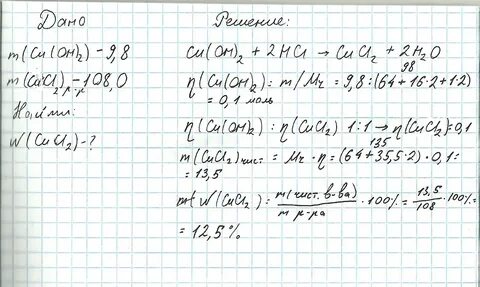 Дано
m(Cu(OH)₂) - 9,8
m(CuCl₂)р-р - 108,0
Найти:
W(CuCl₂) - ?
Решение:
Cu(OH)₂ + 2HCl → CuCl₂ + 2H₂O
98
η(Cu(OH)₂) = m/Mr = 9,8:(64+16·2+1·2)
= 0,1 моль
η(Cu(OH)₂) : η(CuCl₂) 1:1 → η(CuCl₂)=0,1
135
m(CuCl₂)чист = Mr · η = (64+35,5·2)·0,1=
= 13,5
W(CuCl₂) = m(чист. в-ва) / m р-ра · 100% = 13,5 / 108 · 100% =
= 12,5%